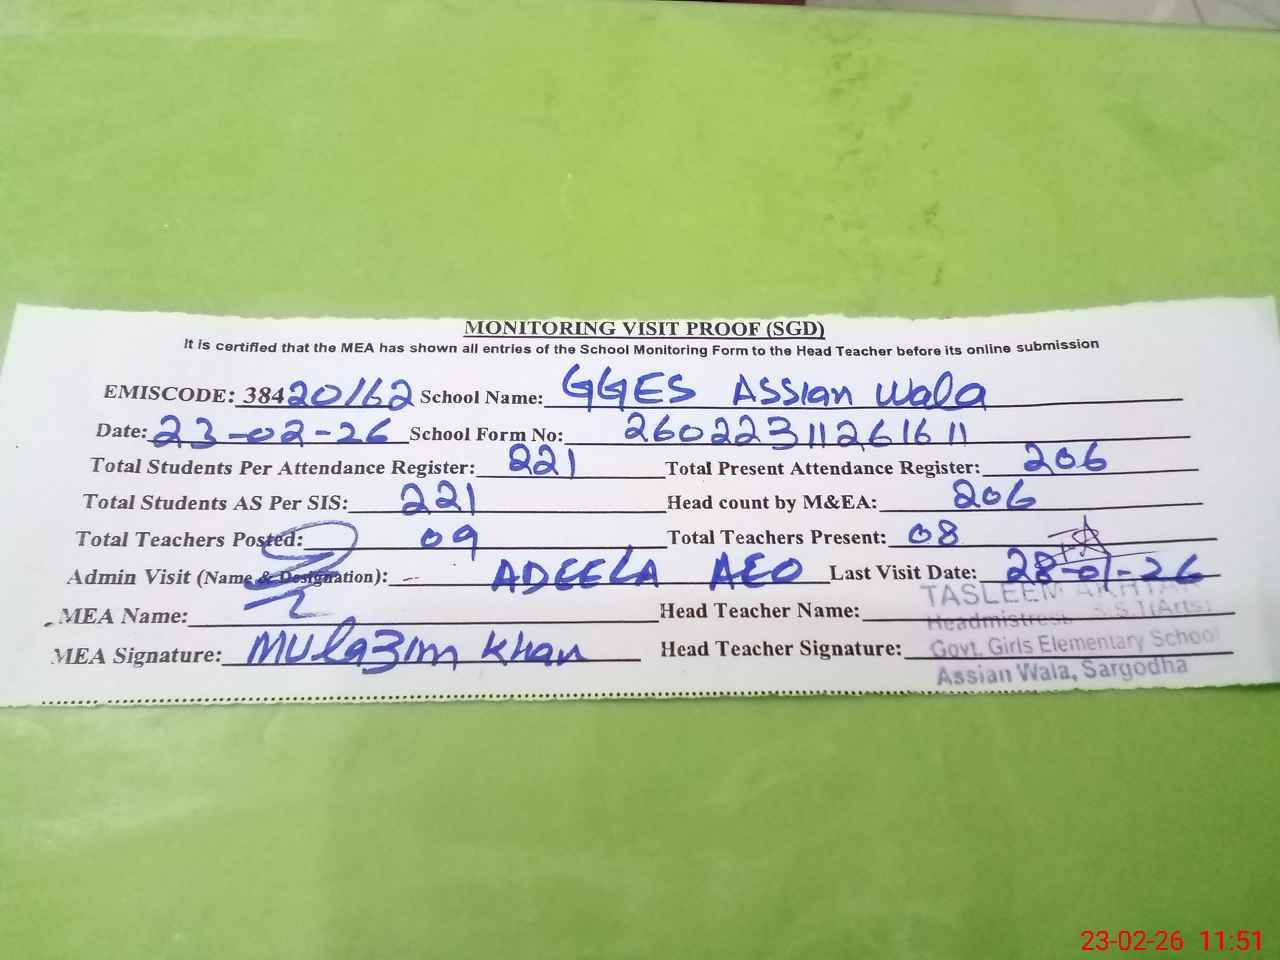 MONITORING VISIT PROOF (SGD)
It is certified that the MEA has shown all entries of the School Monitoring Form to the Head Teacher before its online submission
EMISCODE: 38420162 School Name: GGES Assian Wala
Date: 23-02-26 School Form No: 26022311261611
Total Students Per Attendance Register: 221 Total Present Attendance Register: 206
Total Students AS Per SIS: 221 Head count by M&EA: 206
Total Teachers Posted: 09 Total Teachers Present: 08
Admin Visit (Name & Designation): ADEELA AEO Last Visit Date: 28-01-26
MEA Name: Head Teacher Name:
MEA Signature: Mulazim Khan Head Teacher Signature:
TASLEEM AKHTAR
Headmistress S.S.T(Arts)
Govt. Girls Elementary School
Assian Wala, Sargodha
23-02-26 11:51